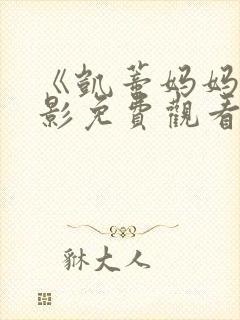 《凱蒂妈妈
影免費觀看
貅大人